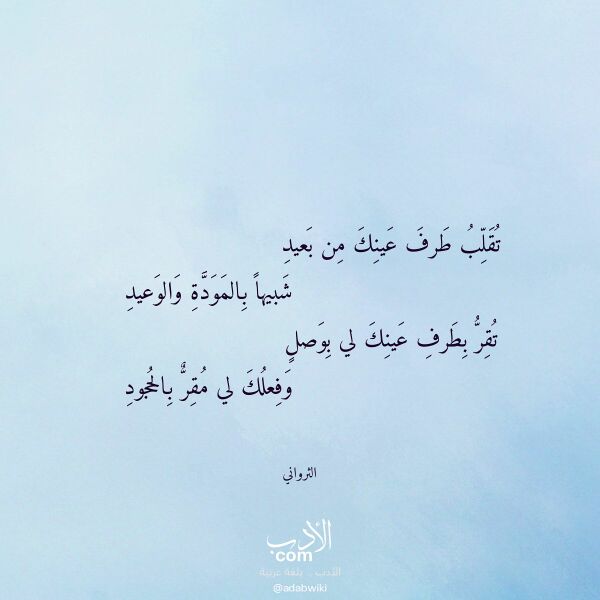 تُقَلِّبُ طَرفَ عَينِكَ مِن بَعيدِ
شَبيهاً بِالمَوَدَّةِ وَالوَعيدِ
تُقِرُّ بِطَرفِ عَينِكَ لي بِوَصلٍ
وَفِعلُكَ لي مُقِرٌّ بِالحُجودِ
الثرواني
الأدب
com
الأدب .. بلغة عربية
@adabwiki